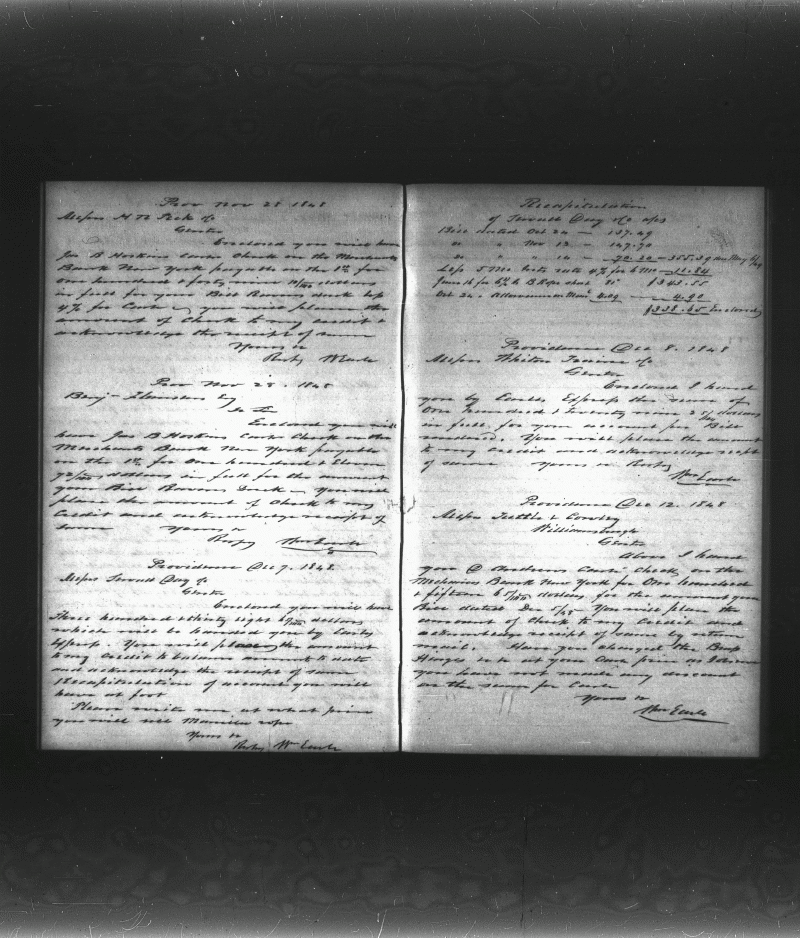 Prov Nov 28 1848
Messrs H & Peck &c
Gents
Enclosed you will have
Jas B Hoskins Cash Check on the Merchants
Bank New York payable on the 1st for
one hundred & forty nine 10/100 dollars
in full for your Bill Ravens duck less
4% for Cash, you will place the
amount of Check to my credit &
acknowledge the receipt of same
Yours &c
Respy W Earle
Prov Nov 28. 1848
Benj Flanders Esq
Dr Sir
Enclosed you will
have Jas B Hoskins Cash Check on the
Merchants Bank New York payable
on the 1st for One hundred & Eleven
72/100 dollars in full for the amount
your Bill Ravens Duck. You will
place the amount of Check to my
credit and acknowledge receipt of
same Yours &c
Respy Wm Earle
Providence Dec 7. 1848.
Messrs Sewall Day &c
Gents
Enclosed you will have
Three hundred & thirty eight 65/100 dollars
which will be handed you by Earles
Express. You will place the amount
to my credit to balance amount to date
and acknowledge the receipt of same
Recapitulation of account you will
have at foot
Please write me at what price
you will sell Manilla rope
Yours &c
Respy Wm Earle
Recapitulation
of Sewall Day &Co a/cs
Bill dated Oct 24 — 137.49
" " Nov 13 — 147.70
" " " 14 — 70.20 — 355.39 due May
Less 5 Mo 4% for 6 Mo — 11.84
$343.55
Oct 24. Allowance on 4.90
$338.65 Enclosed
Providence Dec 8. 1848
Messrs Whiton Train &c
Gents
Enclosed I hand
you by Earles Express the sum of
One hundred & Twenty nine dollars
in full for your account per Bill
rendered. You will place the amount
to my credit and acknowledge receipt
of same Yours &c Respy
Wm Earle
Providence Dec 12. 1848
Messrs Tuttle & Cowley
Williamsburgh
Gents
Above I hand
you Andrews Cash Check on the
Mechanics Bank New York for One hundred
& fifteen 6/100 dollars for the amount your
Bill dated Dec 5/48 You will place the
amount of Check to my credit and
acknowledge receipt of same by return
mail. Have you changed the Brass
Hinges as to at your Cash price as I
you have not made any discount
on the same for Cash
Yours &c
Wm Earle